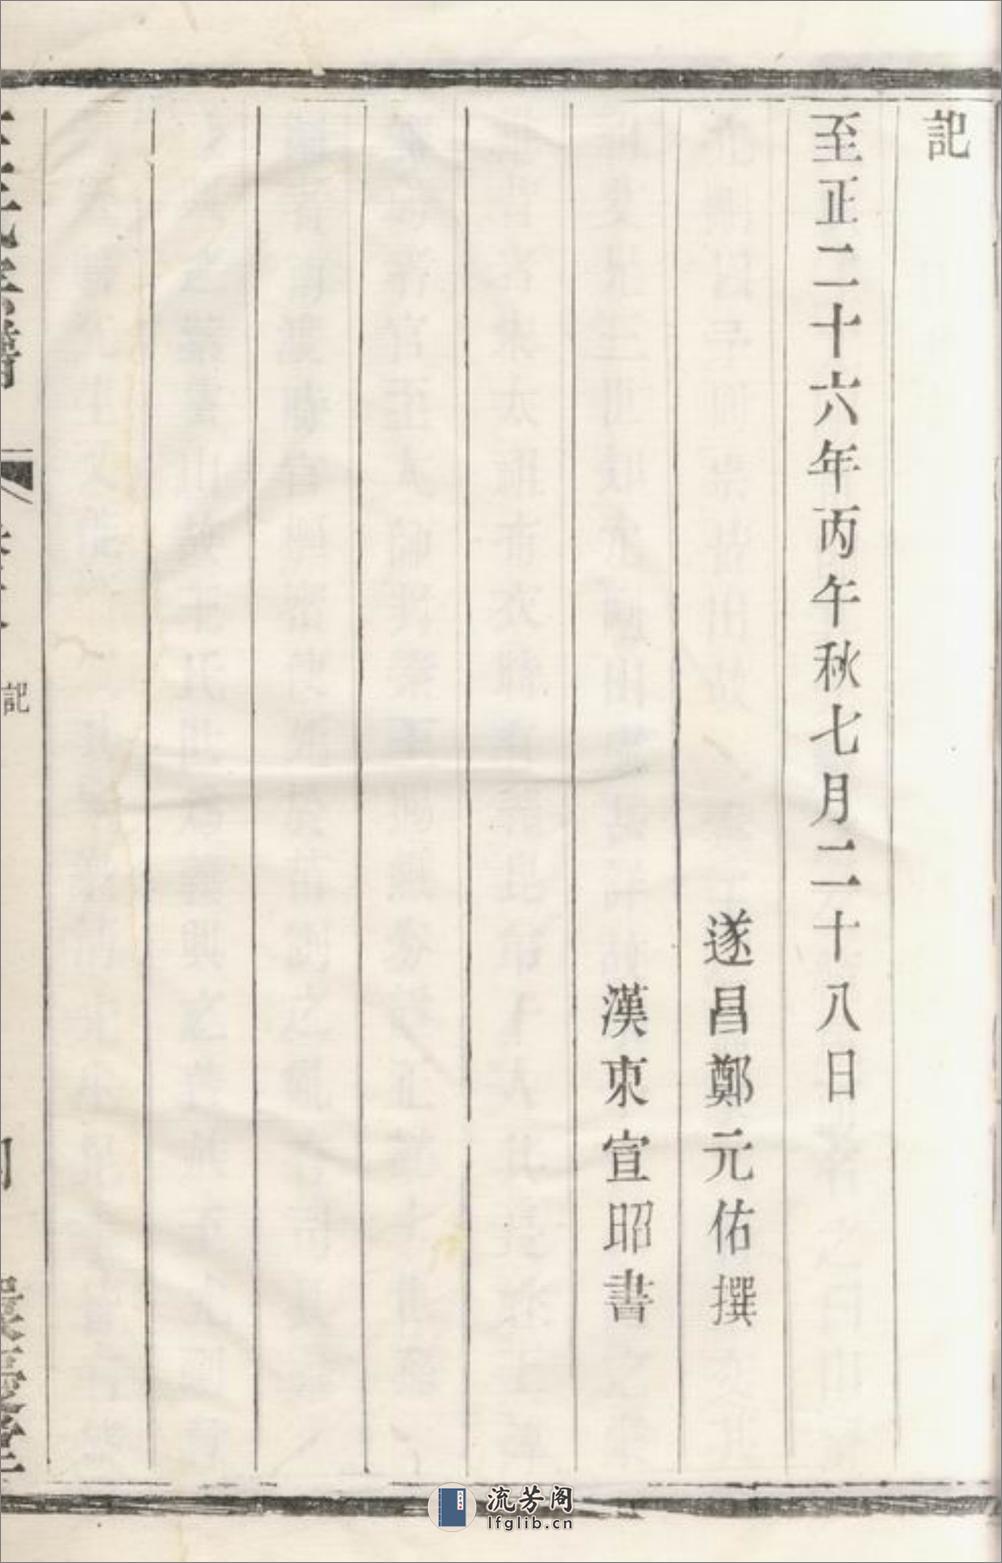 記
至正二十六年丙午秋七月二十八日
遂昌鄭元佑撰
漢東宣昭書
記
流芳阁
lfglib.cn